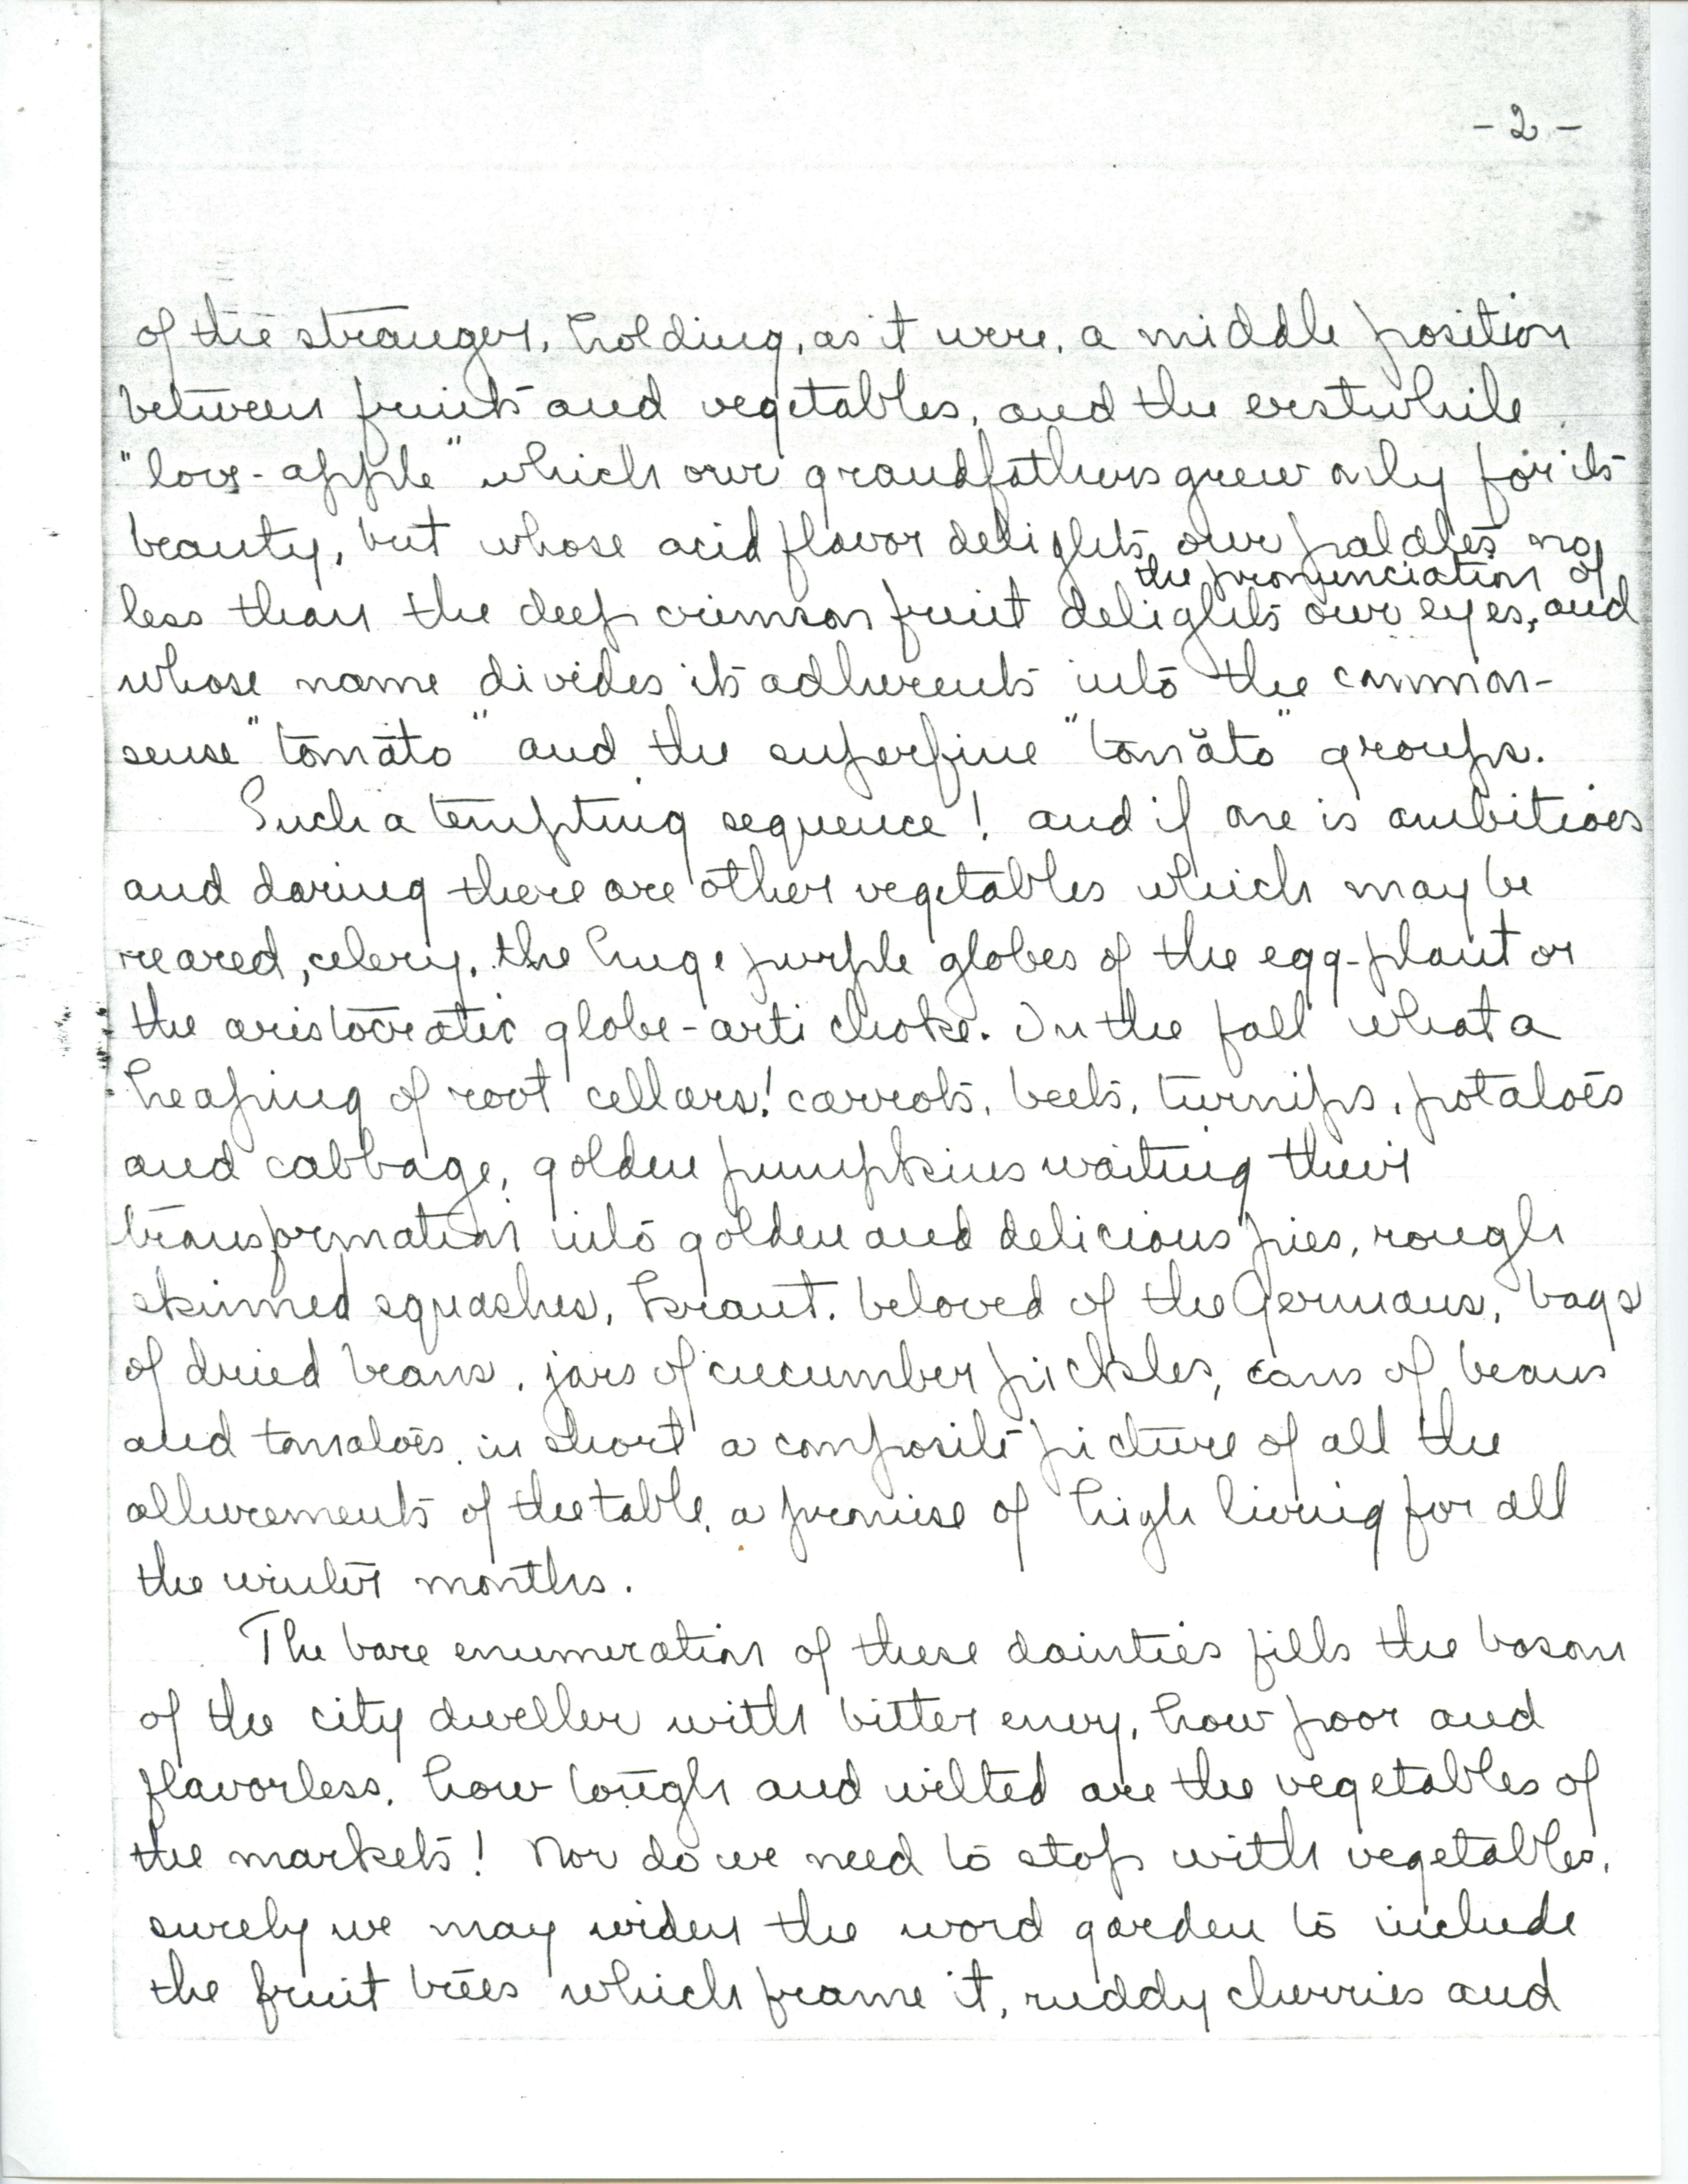 - 2 -
of the stranger, holding, as it were, a middle position
between fruits and vegetables, and the erstwhile
"love-apple" which our grandfathers grew only for its
beauty, but whose acid flavor delights our palates no
the pronunciation of
less than the deep crimson fruit delights our eyes, and
whose name divides its adherents into the common-
sense "tomāto" and the superfine "tomăto" groups.
Such a tempting sequence! and if one is ambitious
and daring there are other vegetables which may be
reared, celery, the huge purple globes of the egg-plant or
the aristocratic globe-artichoke. In the fall what a
heaping of root cellars! carrots, beets, turnips, potatoes
and cabbage, golden pumpkins waiting their
transformation into golden and delicious pies, rough
skinned squashes, kraut, beloved of the Germans, bags
of dried beans, jars of cucumber pickles, cans of beans
and tomatoes, in short a composite picture of all the
allurements of the table, a promise of high living for all
the winter months.
The bare enumeration of these dainties fills the bosom
of the city dweller with bitter envy, how poor and
flavorless, how tough and wilted are the vegetables of
the markets! Nor do we need to stop with vegetables,
surely we may widen the word garden to include
the fruit trees which frame it, ruddy cherries and